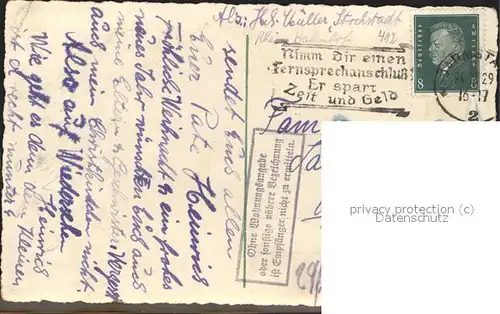 Abs. H. Müller Stockstadt
Nimm Dir einen
Fernsprechanschluß
Er spart
Zeit und Geld
DEUTSCHES REICH
8
29
16-17
2
Fam
Ohne Wohnungsangabe
oder sonstige nähere Bezeichnung
ist Empfänger nicht zu ermitteln.
privacy protection
Datenschutz
sendet Euch allen
Euer Pate Heinrich
Fröhliche Weihnacht & ein frohes
neues Jahr wünschen Euch auch
meine Eltern & Geschwister. Vergeßt
auch mein Christkindchen nicht.
Also auf Wiedersehn
Heinrich
Wie geht es denn dem Kleinen
ist er recht munter?